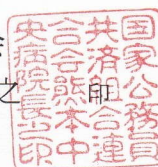 之 印
国家公務員
共済組合連
合会熊本中
央病院長之印